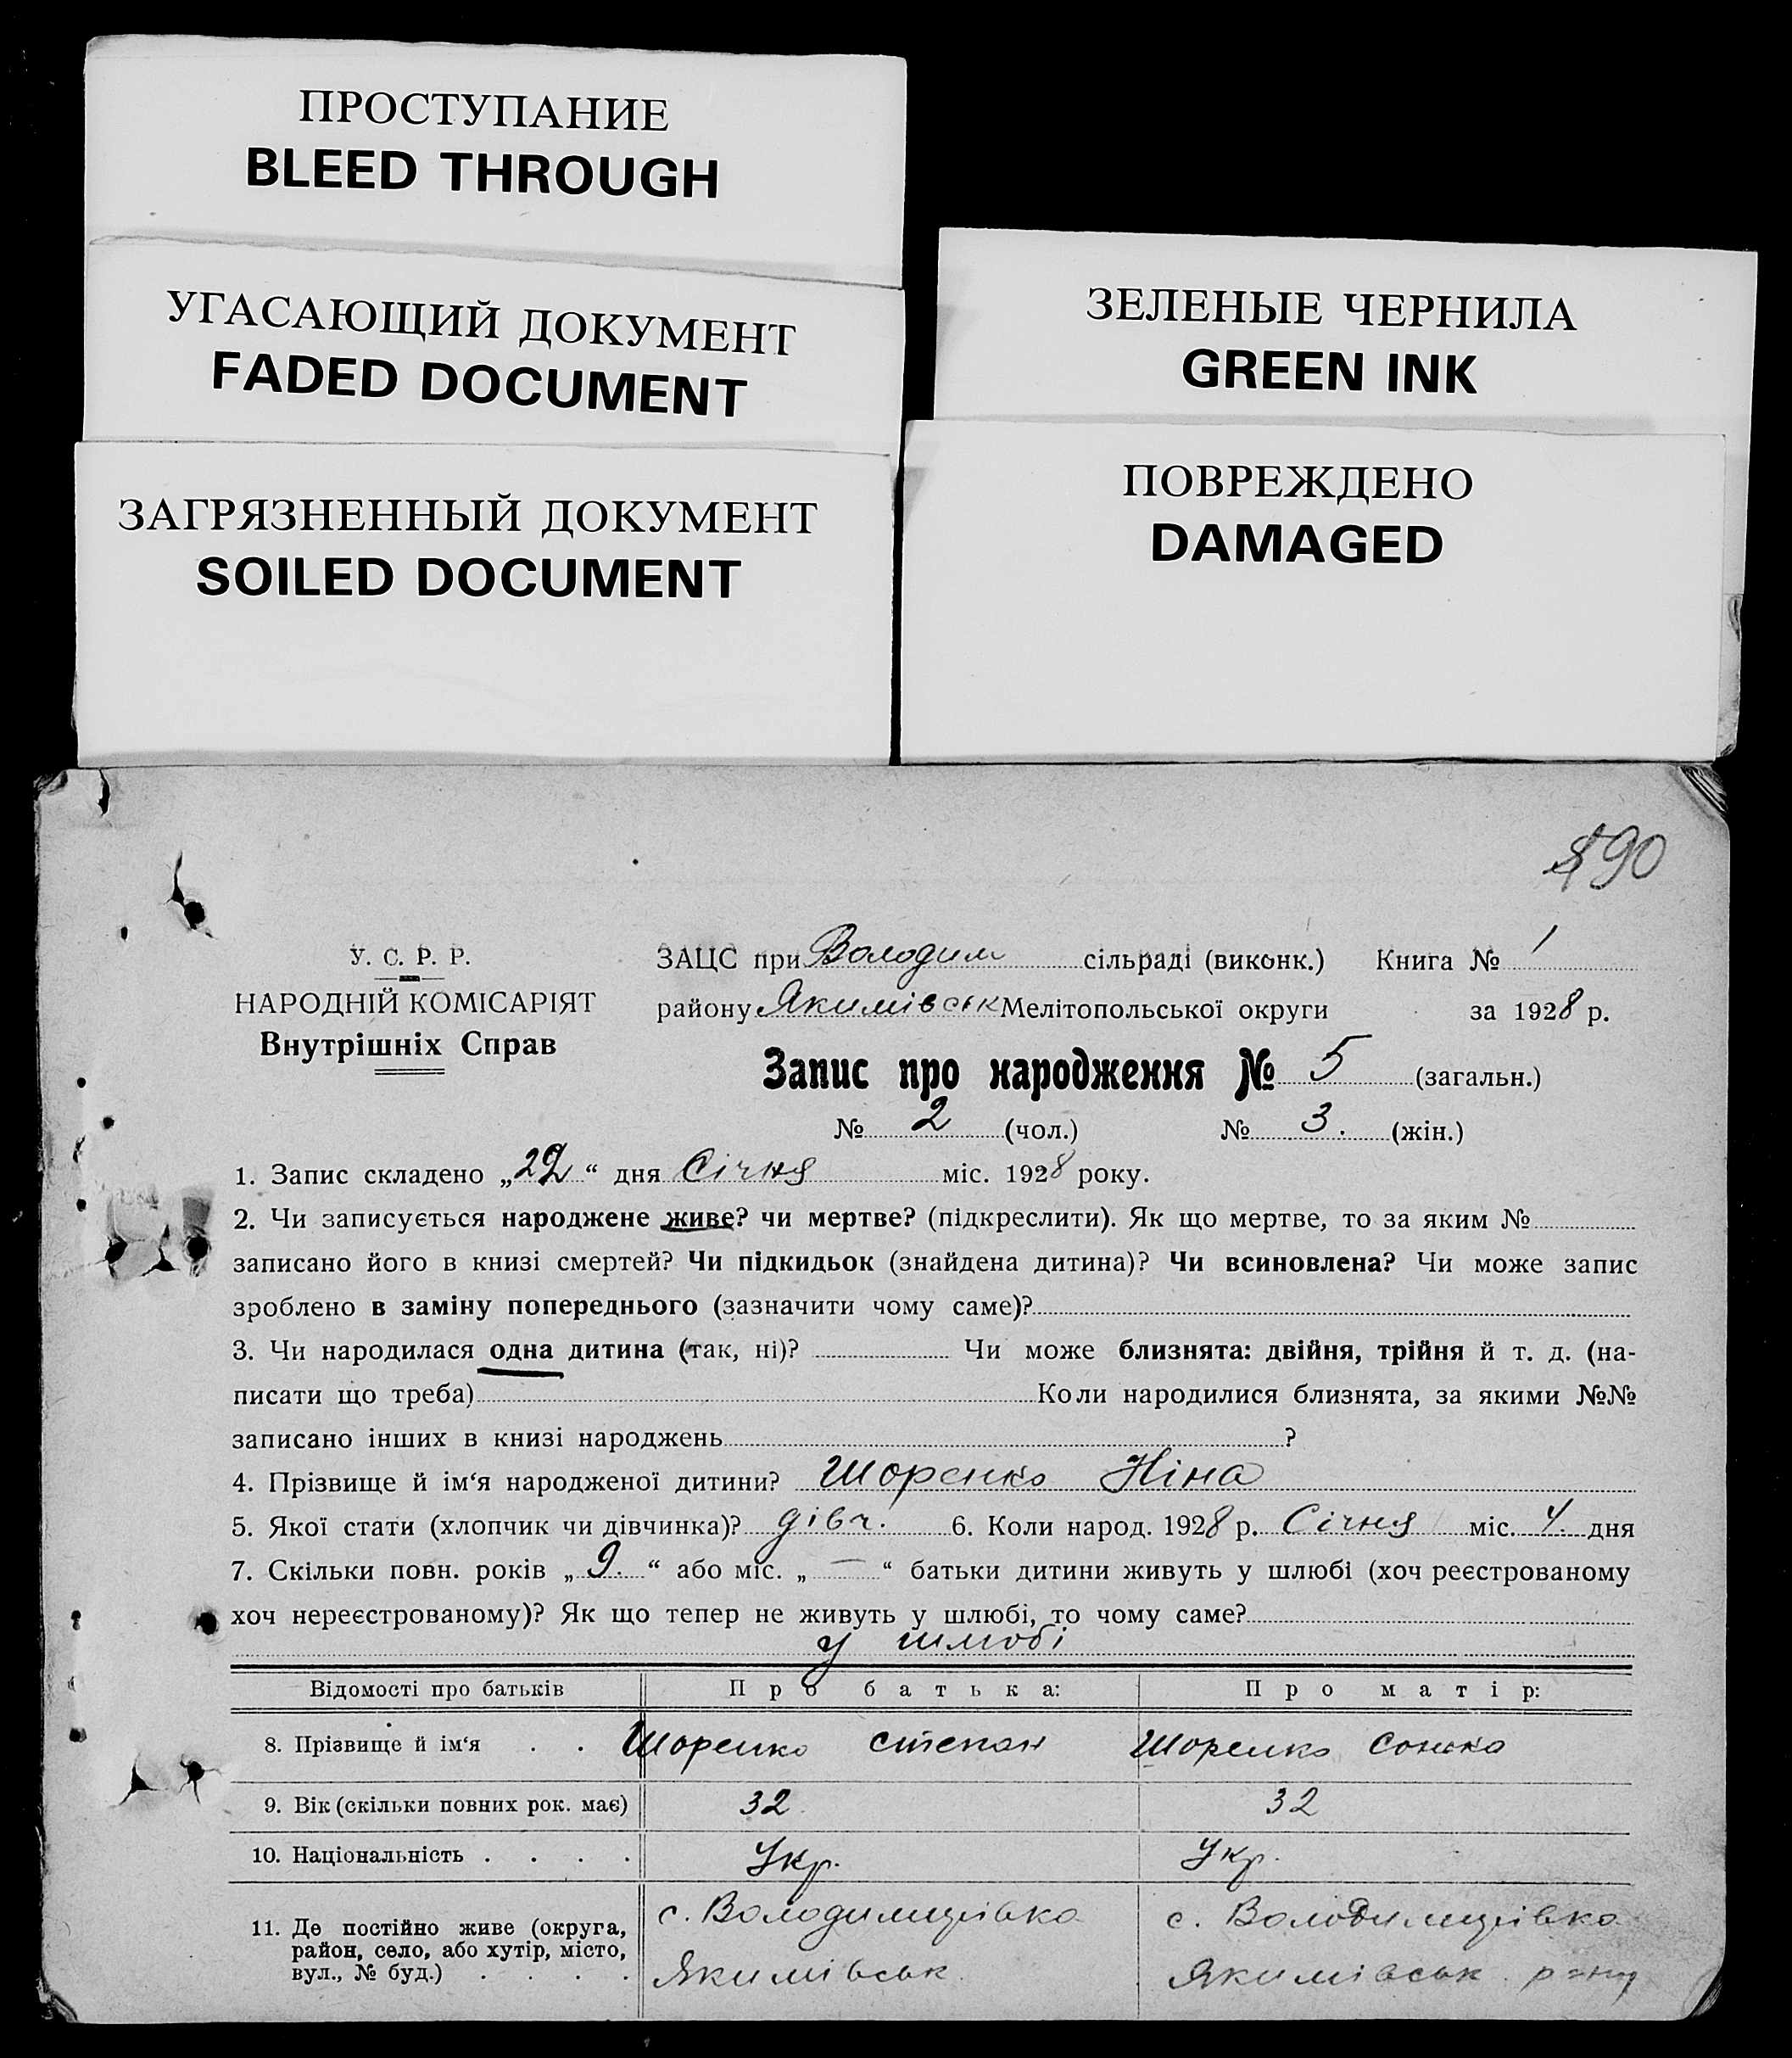 ПРОСТУПАНИЕ
BLEED THROUGH
УГАСАЮЩИЙ ДОКУМЕНТ
FADED DOCUMENT
ЗАГРЯЗНЕННЫЙ ДОКУМЕНТ
SOILED DOCUMENT
ЗЕЛЕНЫЕ ЧЕРНИЛА
GREEN INK
ПОВРЕЖДЕНО
DAMAGED
90
У. С. Р. Р.
НАРОДНІЙ КОМІСАРІЯТ
Внутрішніх Справ
ЗАЦС при Володим сільраді (виконк.) Книга № 1
району Якимівськ Мелітопольської округи за 1928 р.
Запис про народження № 5 (загальн.)
№ 2 (чол.) № 3. (жін.)
1. Запис складено „22“ дня Січня міс. 1928 року.
2. Чи записується народжене живе? чи мертве? (підкреслити). Як що мертве, то за яким №
записано його в книзі смертей? Чи підкидьок (знайдена дитина)? Чи всиновлена? Чи може запис
зроблено в заміну попереднього (зазначити чому саме)?
3. Чи народилася одна дитина (так, ні)? Чи може близнята: двійня, трійня й т. д. (на-
писати що треба) Коли народилися близнята, за якими №№
записано інших в книзі народжень ?
4. Прізвище й ім‘я народженої дитини? Шоренко Ніна
5. Якої стати (хлопчик чи дівчинка)? дівч. 6. Коли народ. 1928 р. Січня міс. 4. дня
7. Скільки повн. років „9.“ або міс. „—“ батьки дитини живуть у шлюбі (хоч реєстрованому
хоч нереєстрованому)? Як що тепер не живуть у шлюбі, то чому саме?
у шлюбі
Відомості про батьків Про батька: Про матір:
8. Прізвище й ім‘я . . Шоренко Степан Шоренко Сонька
9. Вік (скільки повних рок. має) 32 32
10. Національність . . . . Укр. Укр.
11. Де постійно живе (округа,
район, село, або хутір, місто,
вул., № буд.) . . . .
с. Володимирівка с. Володимирівка
Якимівськ Якимівськ р-ну